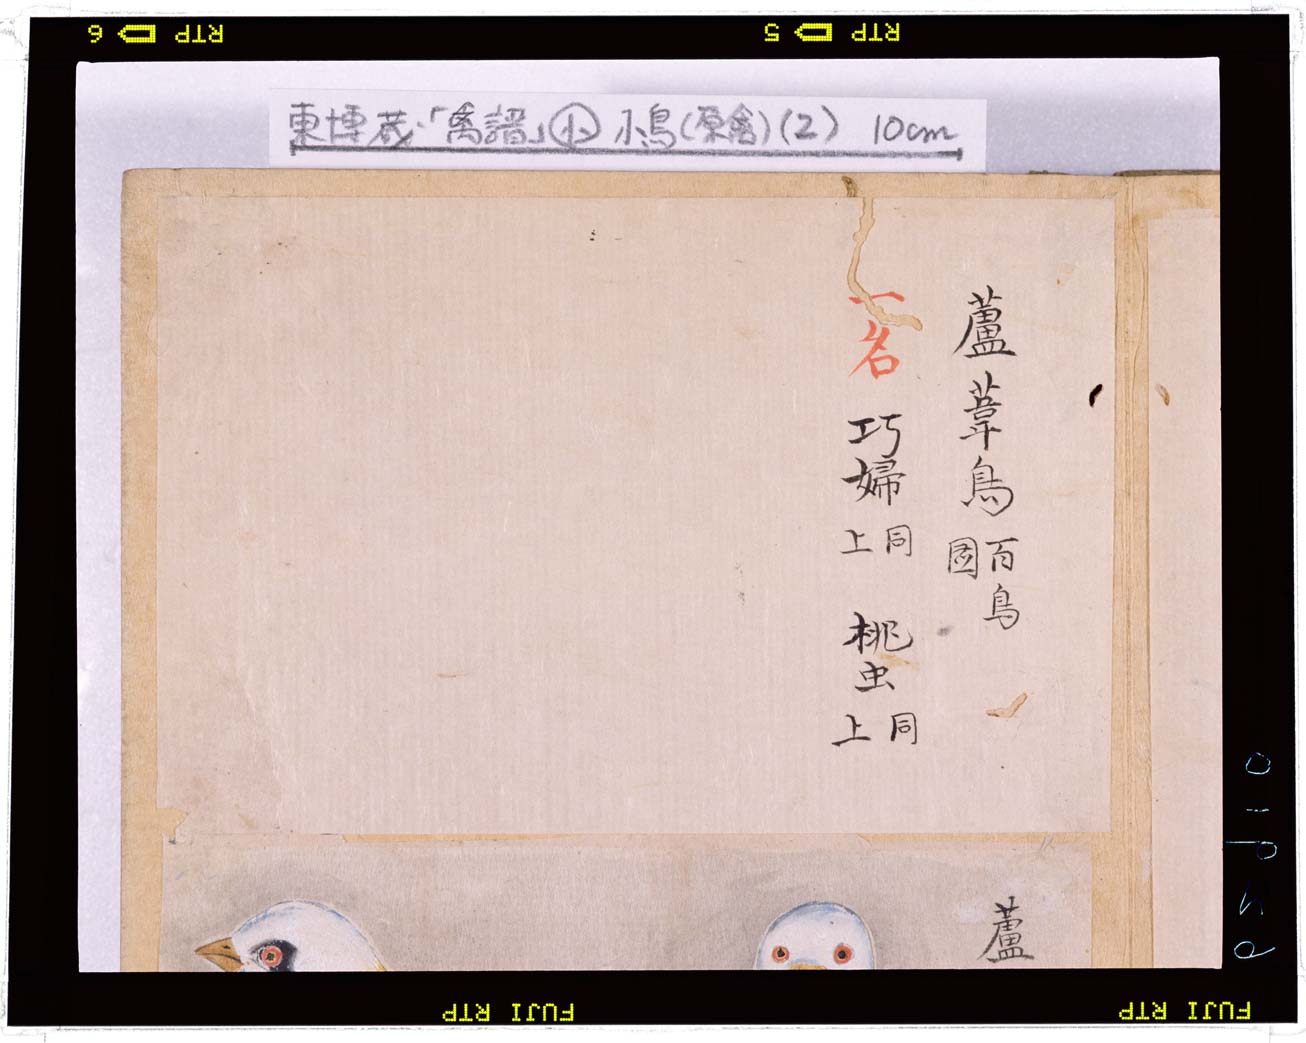 RTP 6
RTP 5
東博蔵・「禽譜」小 小鳥(原禽)(2) 10cm
蘆葦鳥 百鳥圖
一名 巧婦 同上 桃虫 同上
蘆
FUJI RTP
FUJI RTP